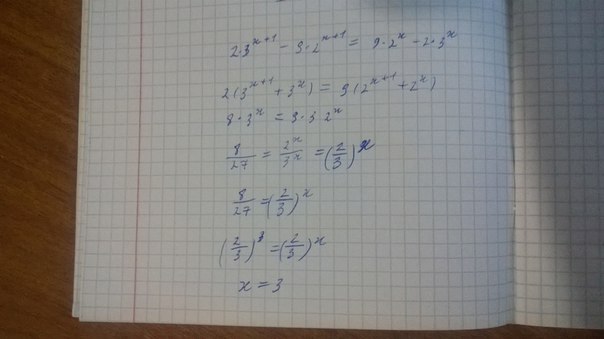 2·3^{x+1} - 9·2^{x+1} = 9·2^x - 2·3^x
2(3^{x+1} + 3^x) = 9(2^{x+1} + 2^x)
8·3^x = 9·3 2^x
8/27 = 2^x/3^x = (2/3)^x
8/27 = (2/3)^x
(2/3)^3 = (2/3)^x
x = 3